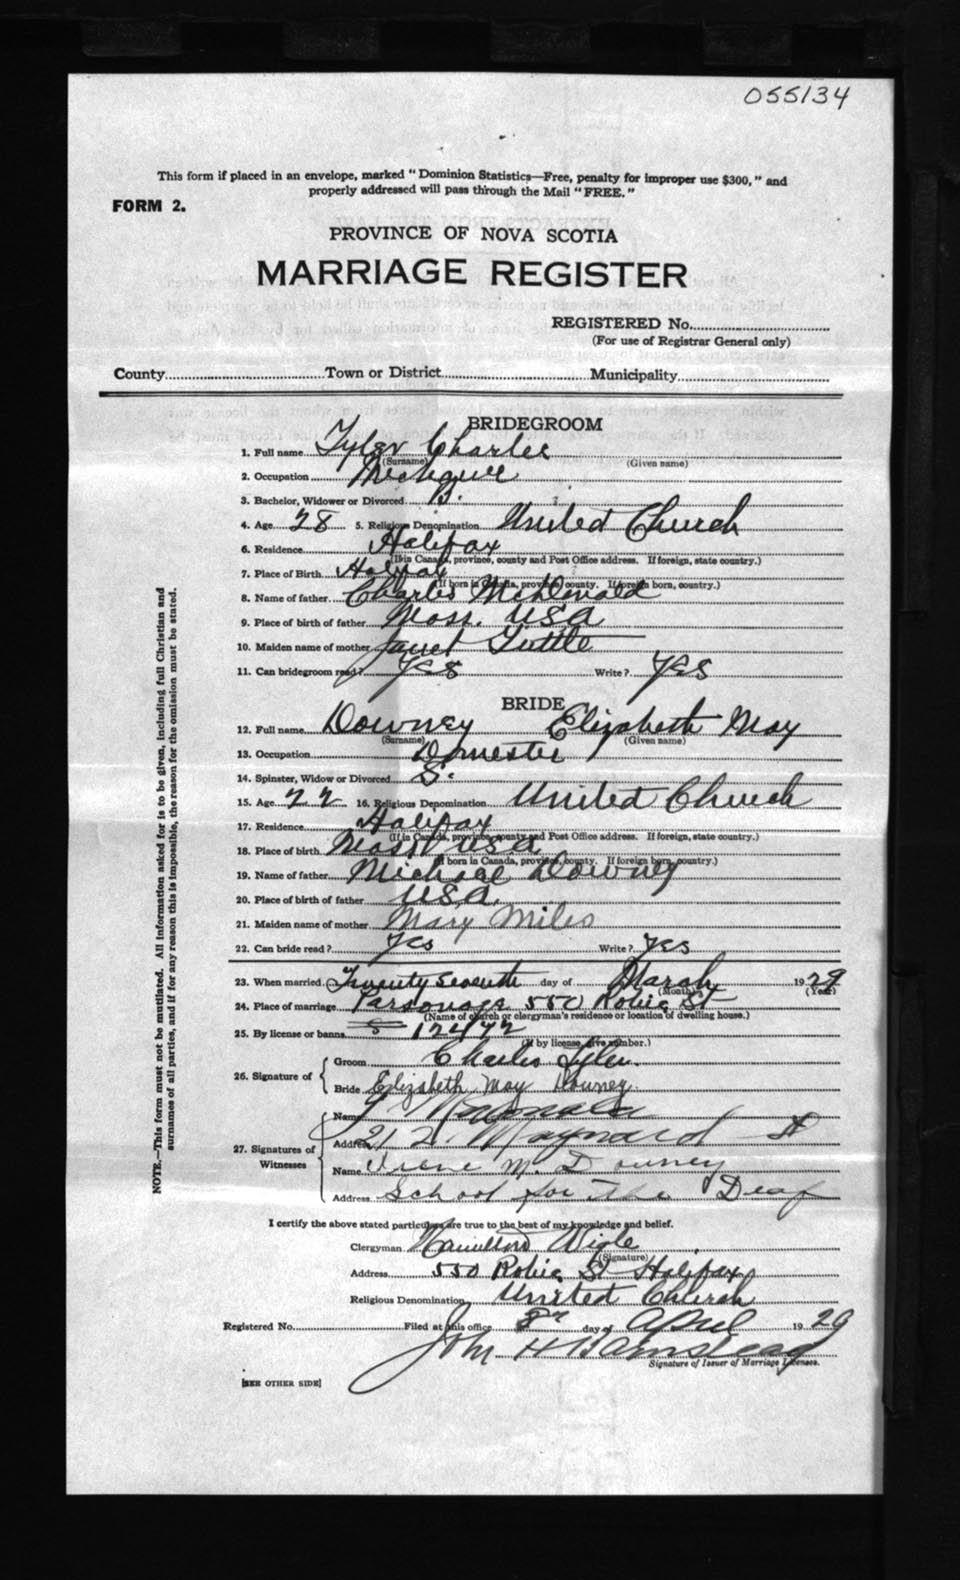 055134
This form if placed in an envelope, marked "Dominion Statistics—Free, penalty for improper use $300," and
properly addressed will pass through the Mail "FREE."
FORM 2.
PROVINCE OF NOVA SCOTIA
MARRIAGE REGISTER
REGISTERED No.
(For use of Registrar General only)
County Town or District Municipality
BRIDEGROOM
1. Full name Tyler Charles
(Surname) (Given name)
2. Occupation
3. Bachelor, Widower or Divorced B.
4. Age 28 5. Religious Denomination United Church
6. Residence Halifax
(If in Canada, province, county and Post Office address. If foreign, state country.)
7. Place of Birth Halifax
(If born in Canada, province, county. If foreign born, country.)
8. Name of father Charles
9. Place of birth of father Mass. USA
10. Maiden name of mother Janet Tuttle
11. Can bridegroom read? Yes Write? Yes
BRIDE
12. Full name Downey Elizabeth May
(Surname) (Given name)
13. Occupation Domestic
14. Spinster, Widow or Divorced S.
15. Age 22 16. Religious Denomination United Church
17. Residence Halifax
(If in Canada, province, county and Post Office address. If foreign, state country.)
18. Place of birth Mass USA
(If born in Canada, province, county. If foreign born, country.)
19. Name of father Michael Downey
20. Place of birth of father USA.
21. Maiden name of mother Mary Miles
22. Can bride read? Yes Write? Yes
23. When married Twenty Seventh day of March 1929
(Month) (Year)
24. Place of marriage Parsonage 550 Robie St
(Name of church or clergyman's residence or location of dwelling house.)
25. By license or banns 12472
(If by license, give number.)
26. Signature of
Groom Charles Tyler.
Bride Elizabeth May Downey.
27. Signatures of
Witnesses
Name
Address 212 Maynard St
Name Irene M Downey
Address School for the Deaf
I certify the above stated particulars are true to the best of my knowledge and belief.
Clergyman Hamilton Wigle
(Signature)
Address 550 Robie St Halifax
Religious Denomination United Church
Registered No. Filed at this office 8th day of April 1929
John H Barnstead
Signature of Issuer of Marriage Licenses.
[SEE OTHER SIDE]
NOTE.—This form must not be mutilated. All information asked for is to be given, including full Christian and
surnames of all parties, and if for any reason this is impossible, the reason for the omission must be stated.